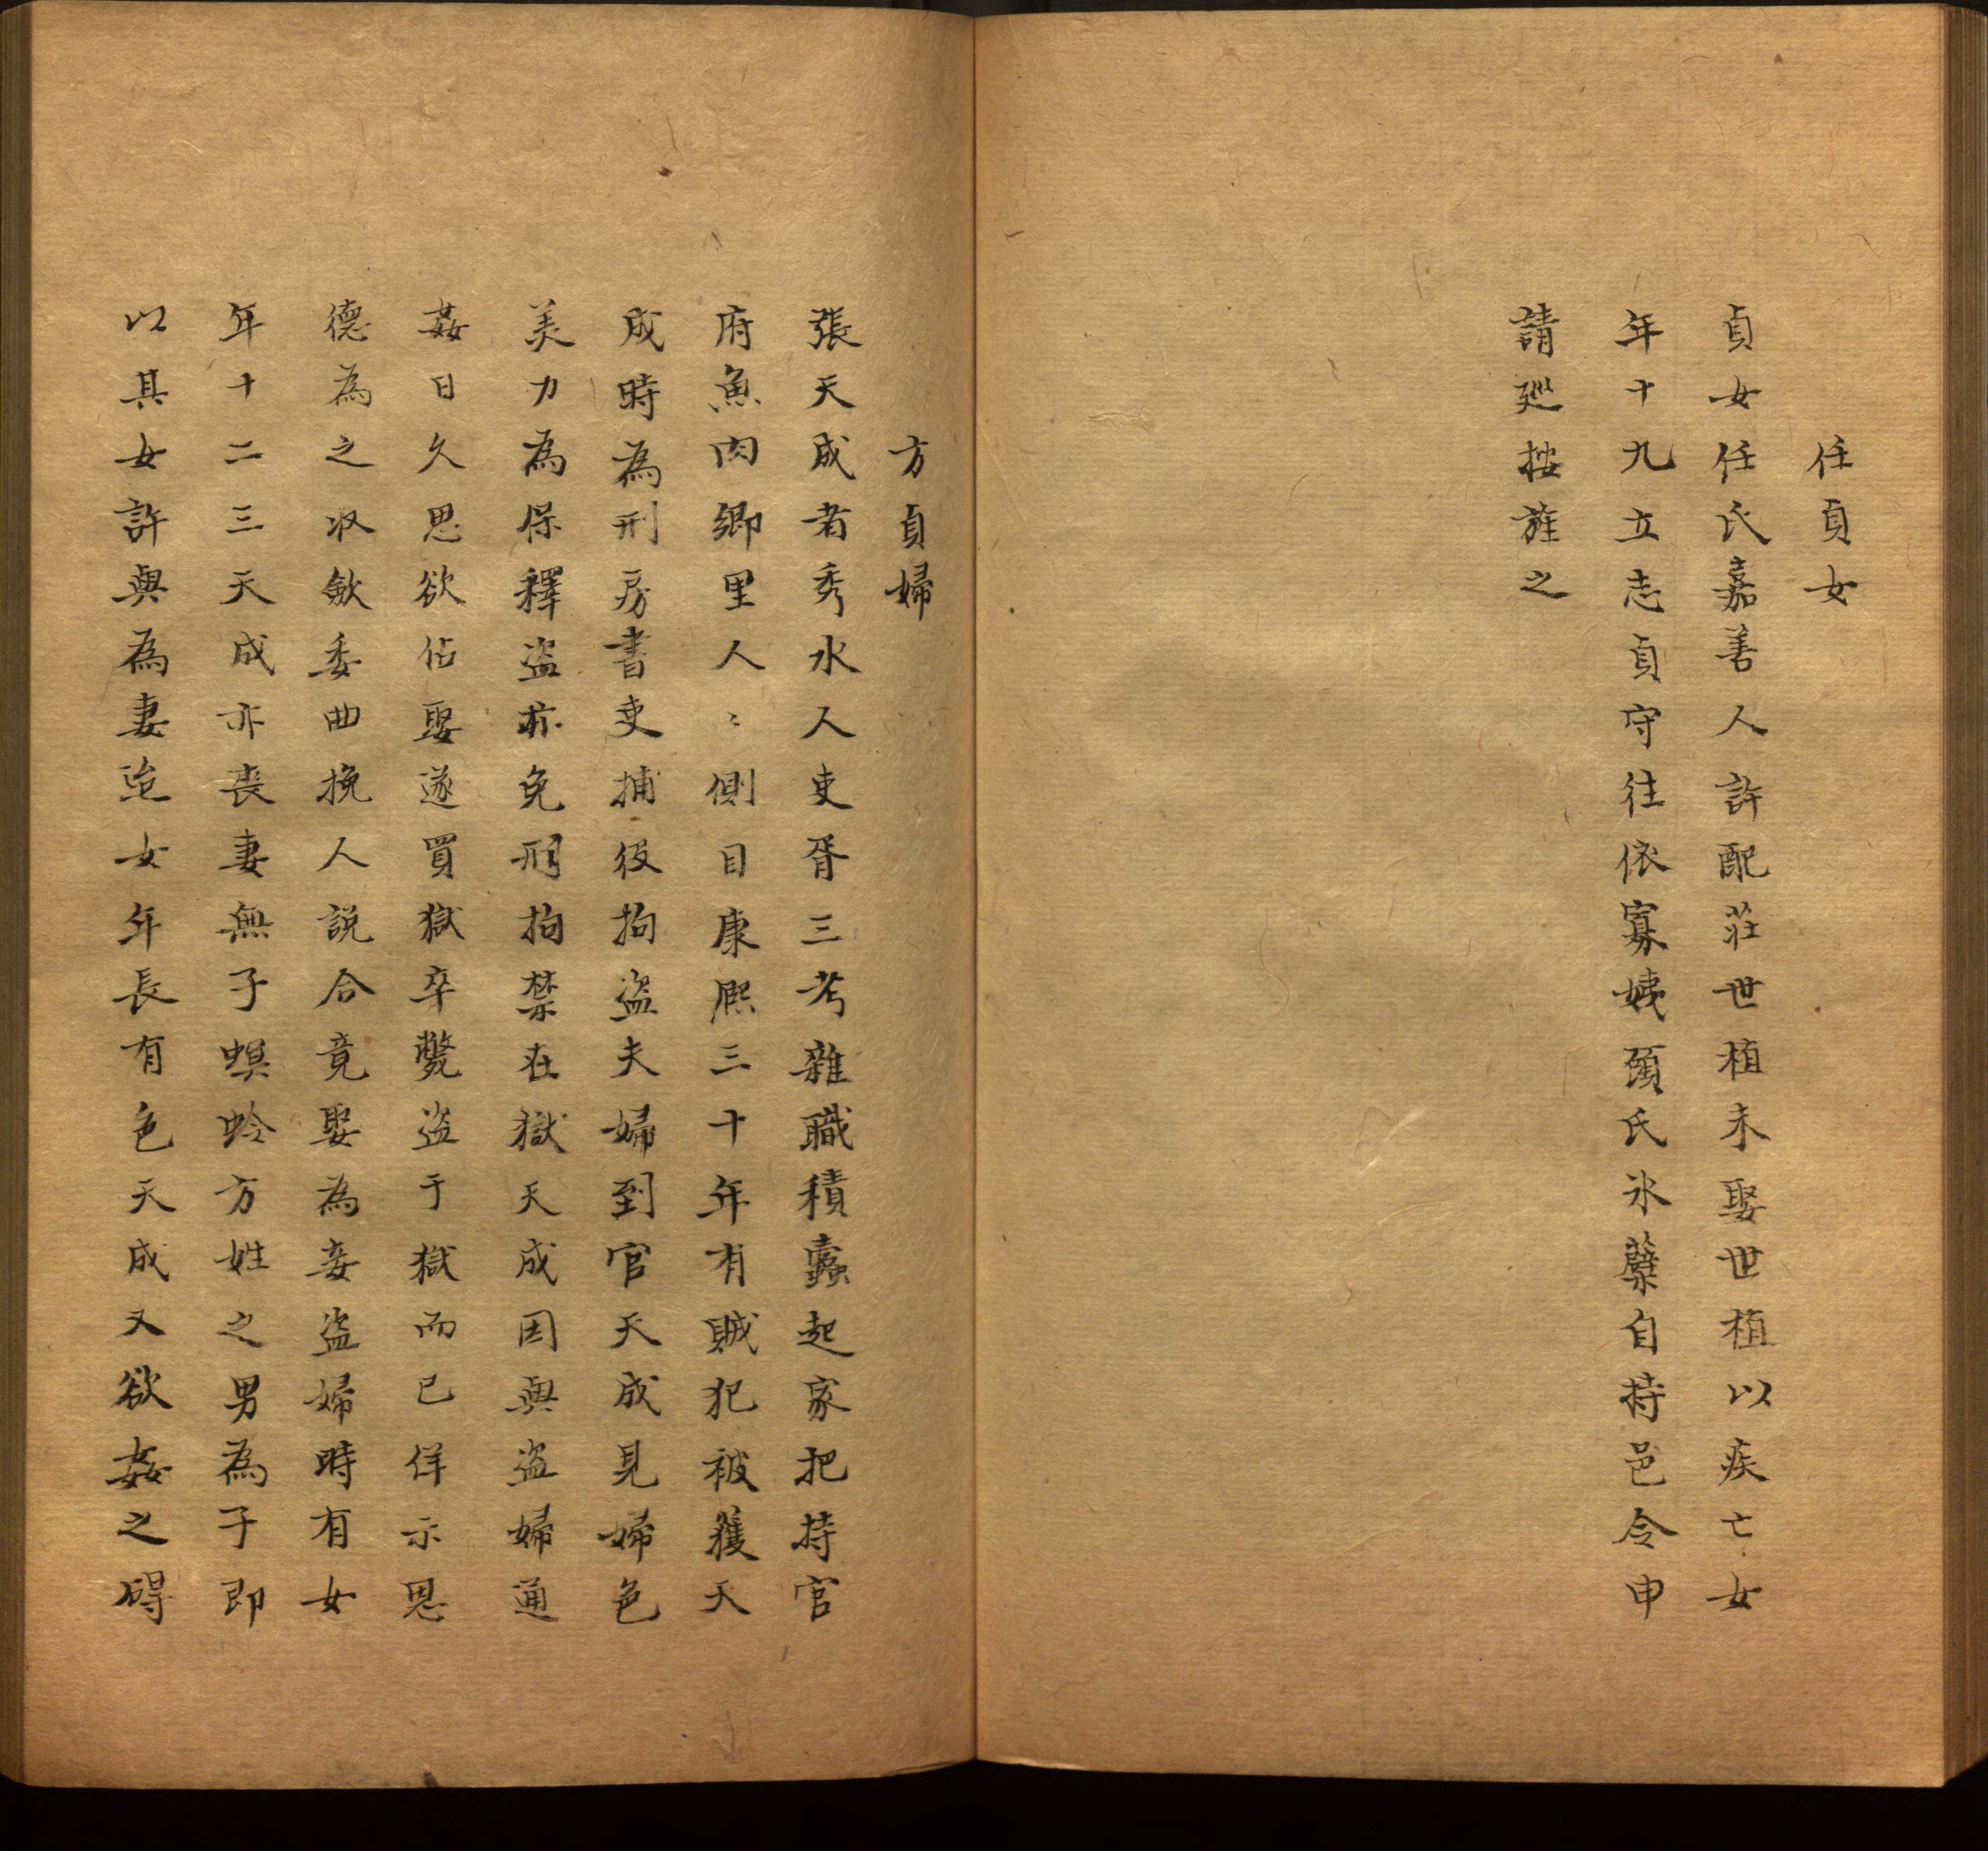 任貞女
貞女任氏嘉善人許配莊世植未娶世植以疾亡女
年十九立志貞守往依寡姨顧氏氷蘗自持邑令申
請廵按旌之
方貞婦
張天成者秀水人吏胥三考雜職積蠹起家把持官
府魚肉鄉里人〻側目康熙三十年有賊犯被獲天
成時為刑房書吏捕役拘盗夫婦到官天成見婦色
美力為保釋盗亦免刑拘禁在獄天成因與盗婦通
姦日久思欲佔娶遂買獄卒斃盗于獄而已佯示恩
德為之収斂委曲挽人説合竟娶為妾盗婦時有女
年十二三天成亦喪妻無子螟蛉方姓之男為子即
以其女許與為妻迨女年長有色天成又欲姦之碍